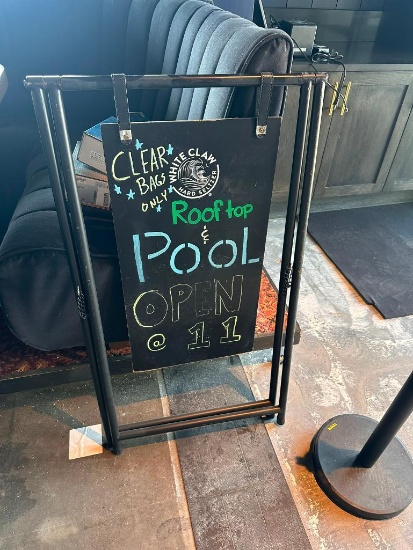 CLEAR
BAGS
ONLY
WHITE CLAW
HARD SELTZER
Rooftop
&
POOL
OPEN
@ 11